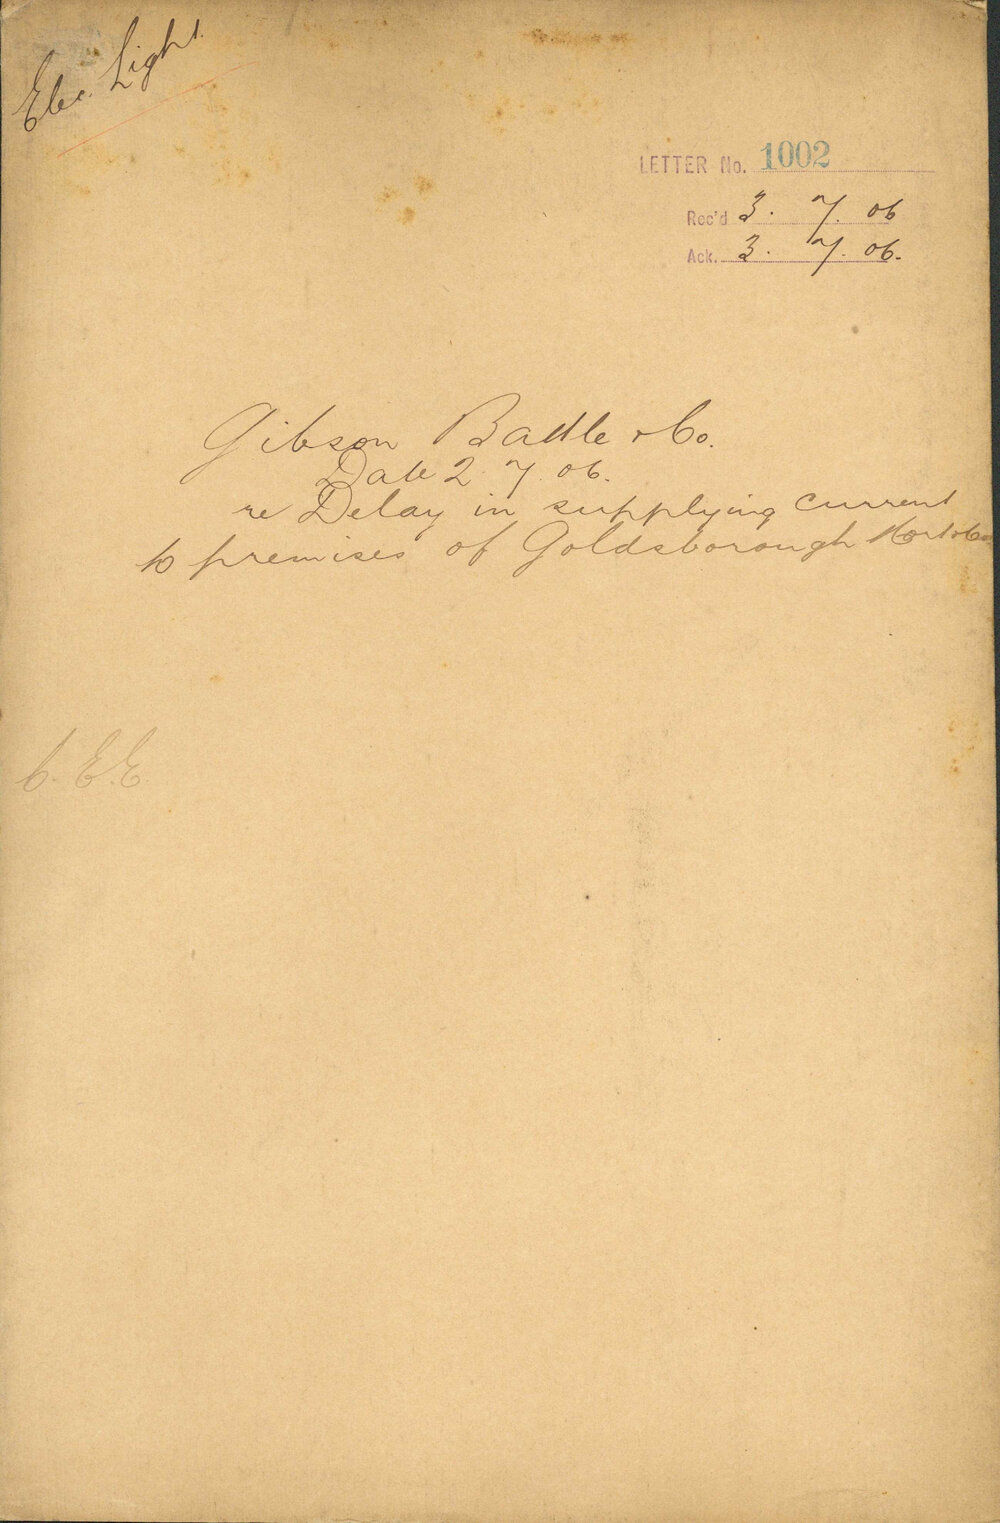 Elec. Light.
LETTER No. 1002
Rec'd 3. 7. 06
Ack. 3. 7. 06.
Gibson Battle & Co.
Date 2. 7. 06.
re Delay in supplying current
to premises of Goldsborough Mort & Co
C. E. E.